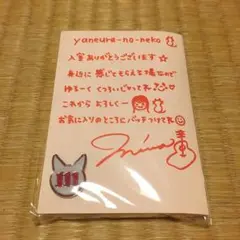 yaneura-no-neko
入室ありがとうございます☆
身近に感じてもらえる場なので
ゆるーく くつろいじゃってネ
これから よろしくー
お気に入りのところにバッヂつけてネ